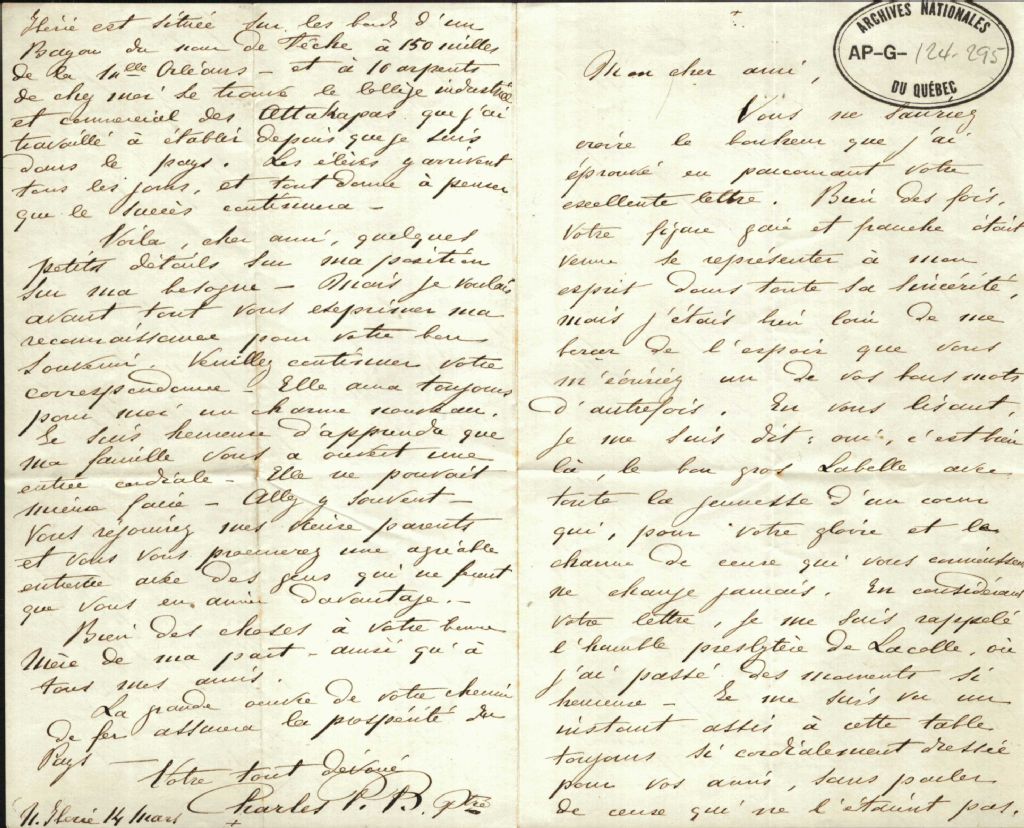 ARCHIVES NATIONALES
AP-G- 124-295
DU QUÉBEC
Mon cher ami,
Vous ne sauriez
croire le bonheur que j'ai
éprouvé en parcourant votre
excellente lettre. Bien des fois,
votre figure gaie et franche était
venue se représenter à mon
esprit dans toute sa sincérité,
mais j'étais bien loin de me
bercer de l'espoir que vous
m'écririez un de vos bons mots
d'autrefois. En vous lisant,
je me suis dit: oui, c'est bien
là, le bon gros Labelle avec
toute la jeunesse d'un coeur
qui, pour votre gloire et le
charme de ceux qui vous connaissent
ne change jamais. En considérant
votre lettre, je me suis rappelé
l'humble presbytère de Lacolle, où
j'ai passé des moments si
heureux - Je me suis vu un
instant assis à cette table
toujours si cordialement dressée
pour vos amis, sans parler
de ceux qui ne l'étaient pas.
Ibérie est située sur les bords d'un
Bayou du nom de Têche à 150 milles
de la Nlle Orléans - et à 10 arpents
de chez moi se trouve le collège industriel
et commercial des Attakapas que j'ai
travaillé à établir depuis que je suis
dans le pays. Les élèves y arrivent
tous les jours, et tout donne à penser
que le succès continuera -
Voila, cher ami, quelques
petits détails sur ma position
sur ma besogne - Mais je voulais
avant tout vous exprimer ma
reconnaissance pour votre bon
souvenir. Veuillez continuer votre
correspondance - Elle aura toujours
pour moi un charme nouveau.
Je suis heureux d'apprendre que
ma famille vous a ouvert une
entrée cordiale - Elle ne pouvait
mieux faire - Allez y souvent -
Vous réjouirez mes vieux parents
et vous vous procurerez une agréable
entrevue avec des gens qui ne feront
que vous en aimer davantage. -
Bien des choses à votre bonne
Mère de ma part - ainsi qu'à
tous mes amis.
La grande oeuvre de votre chemin
de fer assurera la prospérité du
Pays -
Votre tout dévoué
Charles P. B. ptre
N. Ibérie 14 mars